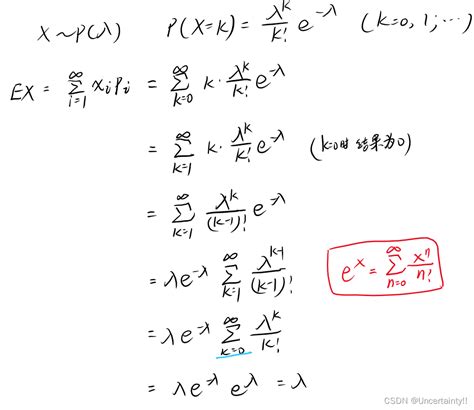 X ~ P(λ)    P(X=k) = λ^k/k! e^{-λ}    (k=0, 1, ⋯)
EX = ∑_{i=1}^{∞} x_i p_i = ∑_{k=0}^{∞} k · λ^k/k! e^{-λ}
= ∑_{k=1}^{∞} k · λ^k/k! e^{-λ}    (k=0时 结果为0)
= ∑_{k=1}^{∞} λ^k/(k-1)! e^{-λ}
= λe^{-λ} ∑_{k=1}^{∞} λ^{k-1}/(k-1)!
e^x = ∑_{n=0}^{∞} x^n/n!
= λe^{-λ} ∑_{k=0}^{∞} λ^k/k!
= λe^{-λ} e^λ = λ
CSDN @Uncertainty!!